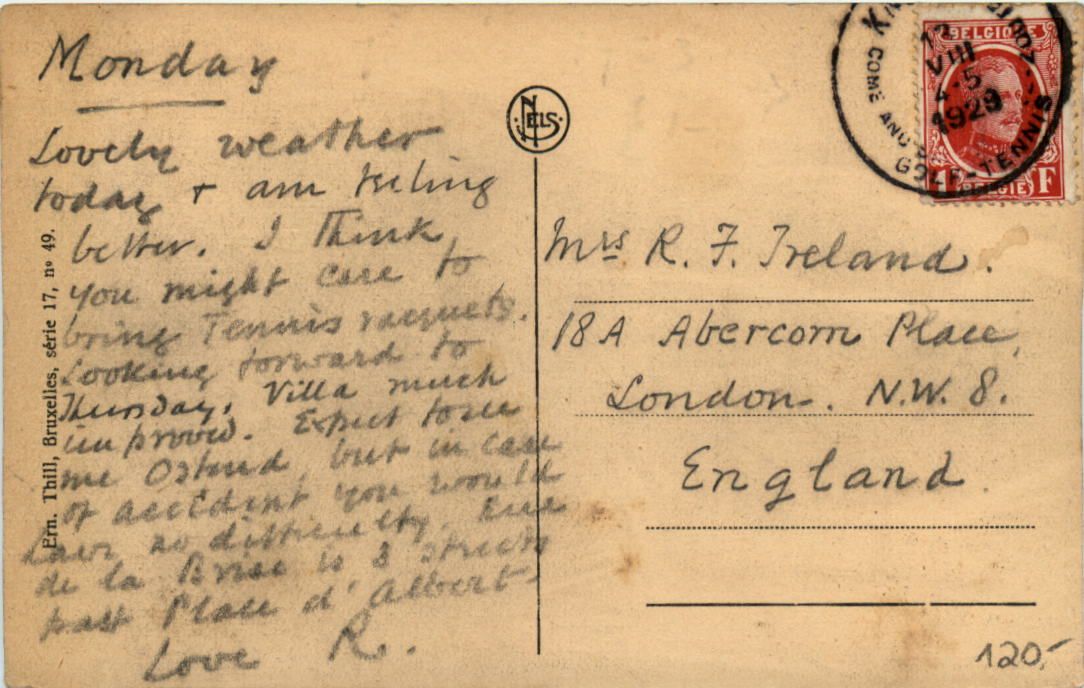 Monday
Lovely weather
today + am feeling
better. I think
you might care to
bring Tennis racquets.
Looking forward to
Thursday. Villa much
improved. Expect to see
me Ostend, but in case
of accident you would
have no difficulty. Rue
de la Brise is 3 streets
past Place d'Albert
Love R.
Ern. Thill, Bruxelles, série 17, nº 49.
NELS
BELGIQUE
1 BELGIE F
12
VIII
4-5
1929
GOLF-TENNIS
Mrs R. F. Ireland.
18A Abercorn Place,
London. N.W. 8.
England.
120,-